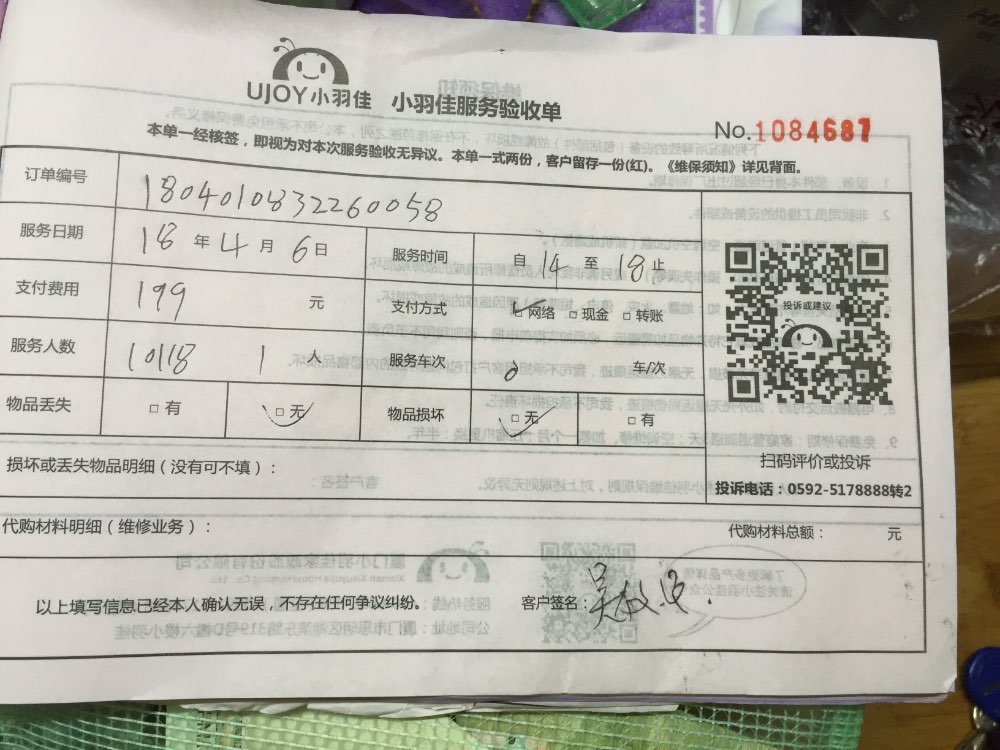 UJOY小羽佳 小羽佳服务验收单
No.1084687
本单一经核签，即视为对本次服务验收无异议。本单一式两份，客户留存一份(红)。《维保须知》详见背面。
订单编号 1804010832260058
服务日期 18 年 4 月 6 日 服务时间 自 14 至 18 止
支付费用 199 元 支付方式 ☑网络 □现金 □转账
服务人数 10118 1 人 服务车次 0 车/次
物品丢失 □有 ☑无 物品损坏 ☑无 □有
投诉或建议
扫码评价或投诉
投诉电话：0592-5178888转2
损坏或丢失物品明细（没有可不填）：
代购材料明细（维修业务）： 代购材料总额： 元
以上填写信息已经本人确认无误，不存在任何争议纠纷。 客户签名：吴